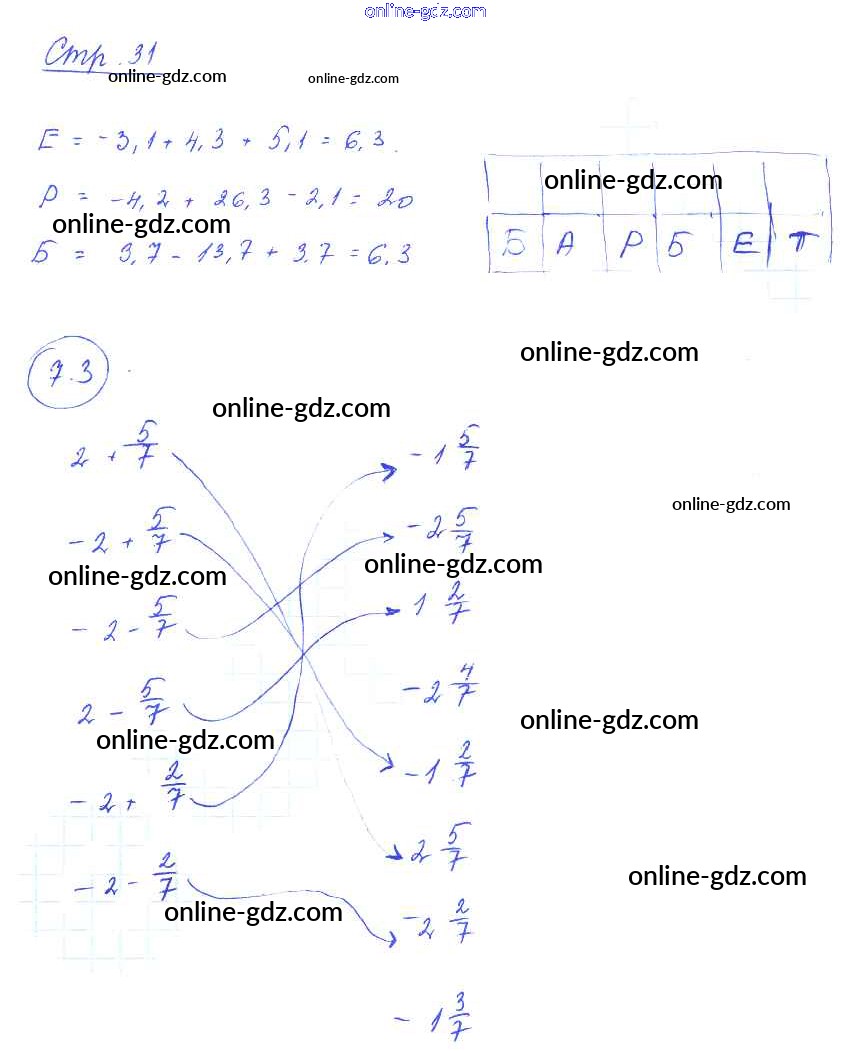 online-gdz.com
Стр. 31
online-gdz.com online-gdz.com
Е = -3,1 + 4,3 + 5,1 = 6,3.
Р = -4,2 + 26,3 - 2,1 = 20
online-gdz.com
online-gdz.com
Б = 3,7 - 13,7 + 3,7 = 6,3
Б А Р Б Е Т
online-gdz.com
7.3
online-gdz.com
2 + 5/7 -1 5/7
online-gdz.com
-2 + 5/7 -2 5/7
online-gdz.com online-gdz.com
-2 - 5/7 1 2/7
2 - 5/7 -2 4/7
online-gdz.com online-gdz.com
-2 + 2/7 -1 2/7
2 5/7
-2 - 2/7
online-gdz.com
online-gdz.com
-2 2/7
-1 3/7